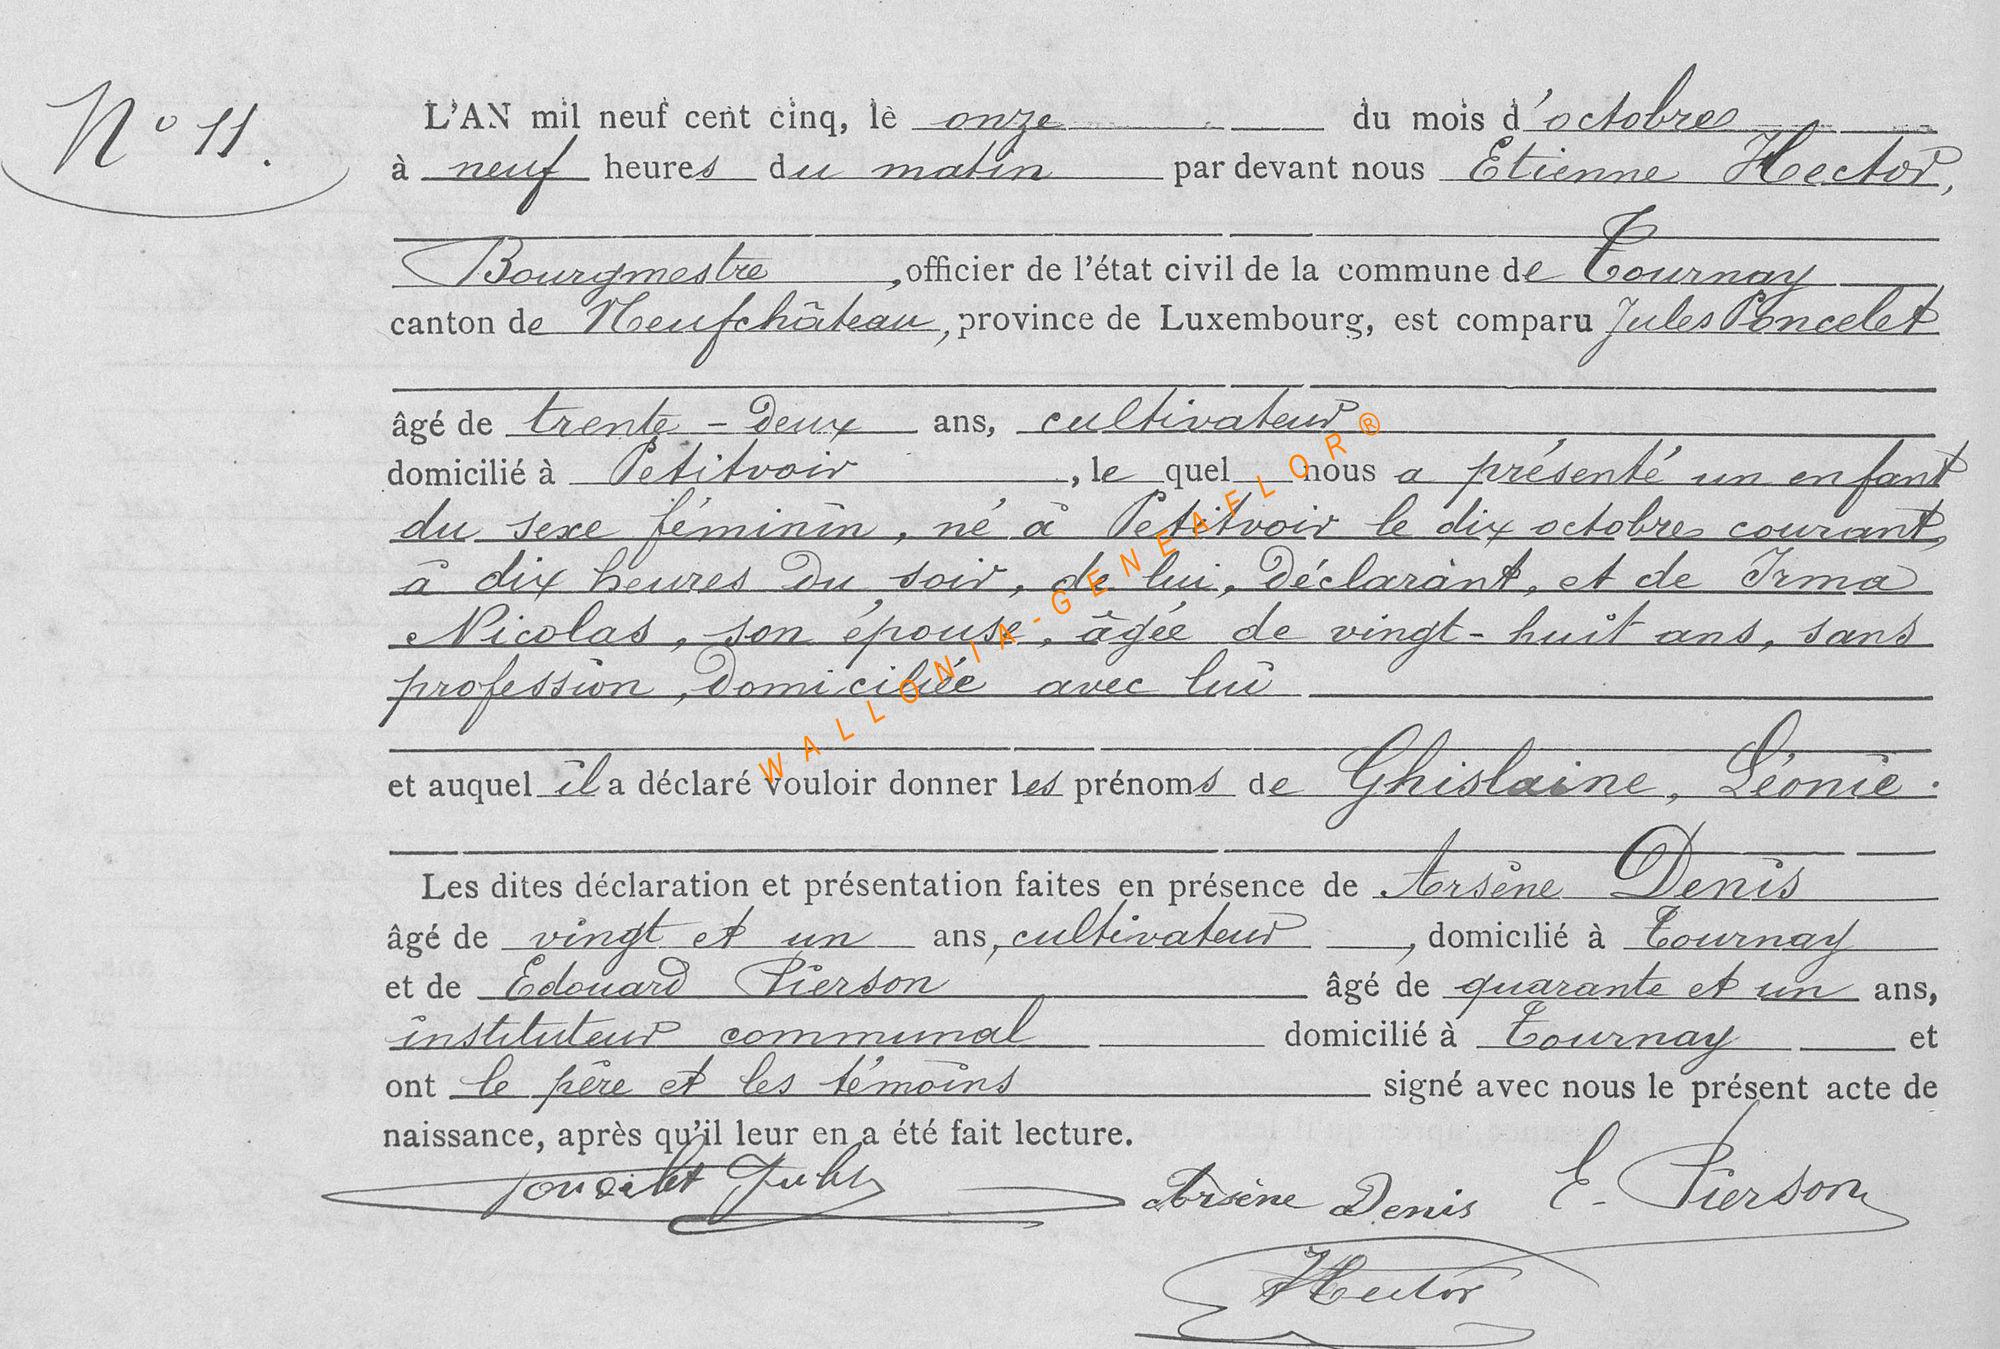 N° 11.
L'AN mil neuf cent cinq, le onze du mois d'octobre
à neuf heures du matin par devant nous Etienne Hector,
Bourgmestre, officier de l'état civil de la commune de Tournay
canton de Neufchâteau, province de Luxembourg, est comparu Jules Poncelet
âgé de trente-deux ans, cultivateur
domicilié à Petitvoir, le quel nous a présenté un enfant
du sexe féminin, né à Petitvoir le dix octobre courant,
à dix heures du soir, de lui, déclarant, et de Irma
Nicolas, son épouse, âgée de vingt-huit ans, sans
profession, domiciliée avec lui
et auquel il a déclaré vouloir donner les prénoms de Ghislaine, Léonie.
Les dites déclaration et présentation faites en présence de Arsène Denis
âgé de vingt et un ans, cultivateur, domicilié à Tournay
et de Edouard Pierson âgé de quarante et un ans,
instituteur communal domicilié à Tournay et
ont le père et les témoins signé avec nous le présent acte de
naissance, après qu'il leur en a été fait lecture.
Poncelet Jules Arsène Denis E. Pierson
Hector
WALLONIA-GENEAFLOR®